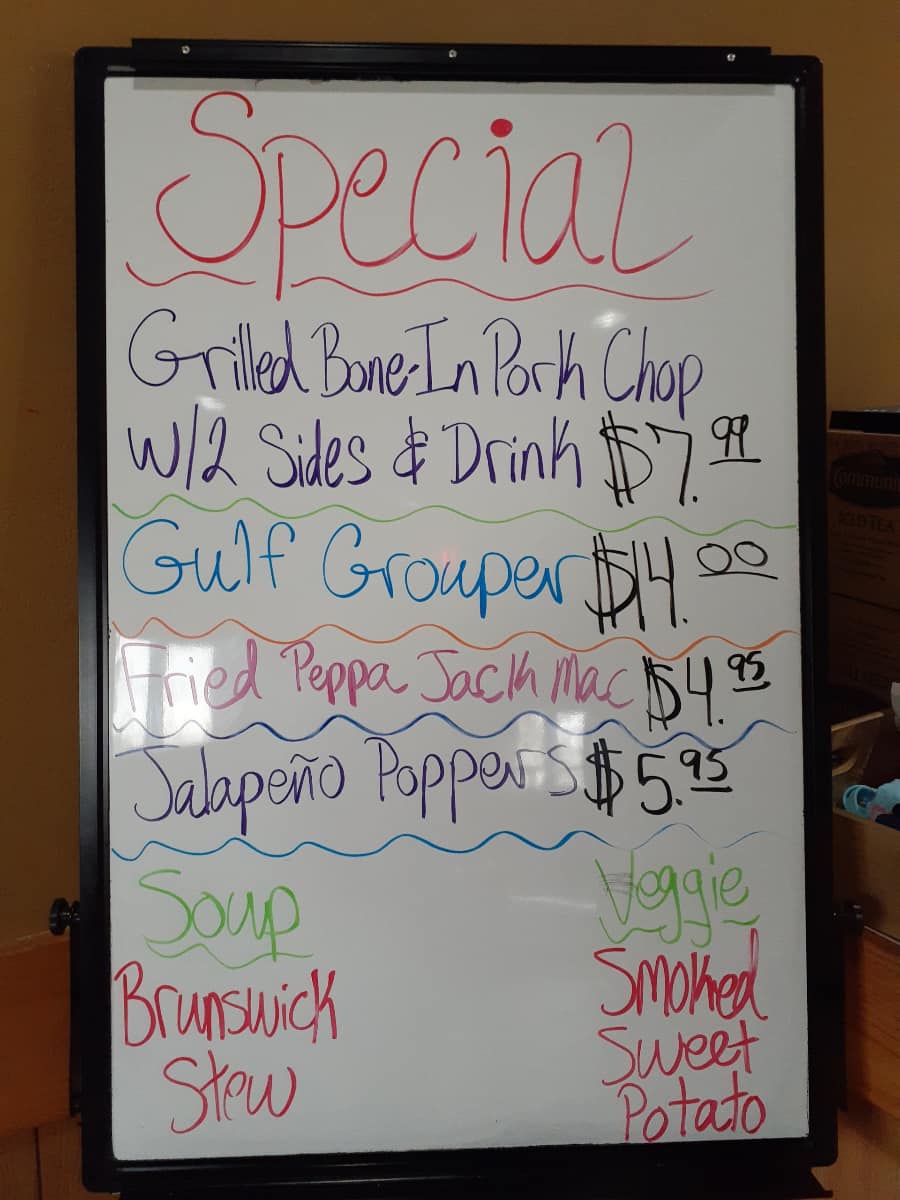 Special
Grilled Bone-In Pork Chop
W/2 Sides & Drink $7.99
Gulf Grouper $14.00
Fried Peppa Jack Mac $4.95
Jalapeño Poppers $5.95
Soup
Brunswick
Stew
Veggie
Smoked
Sweet
Potato
ICED TEA